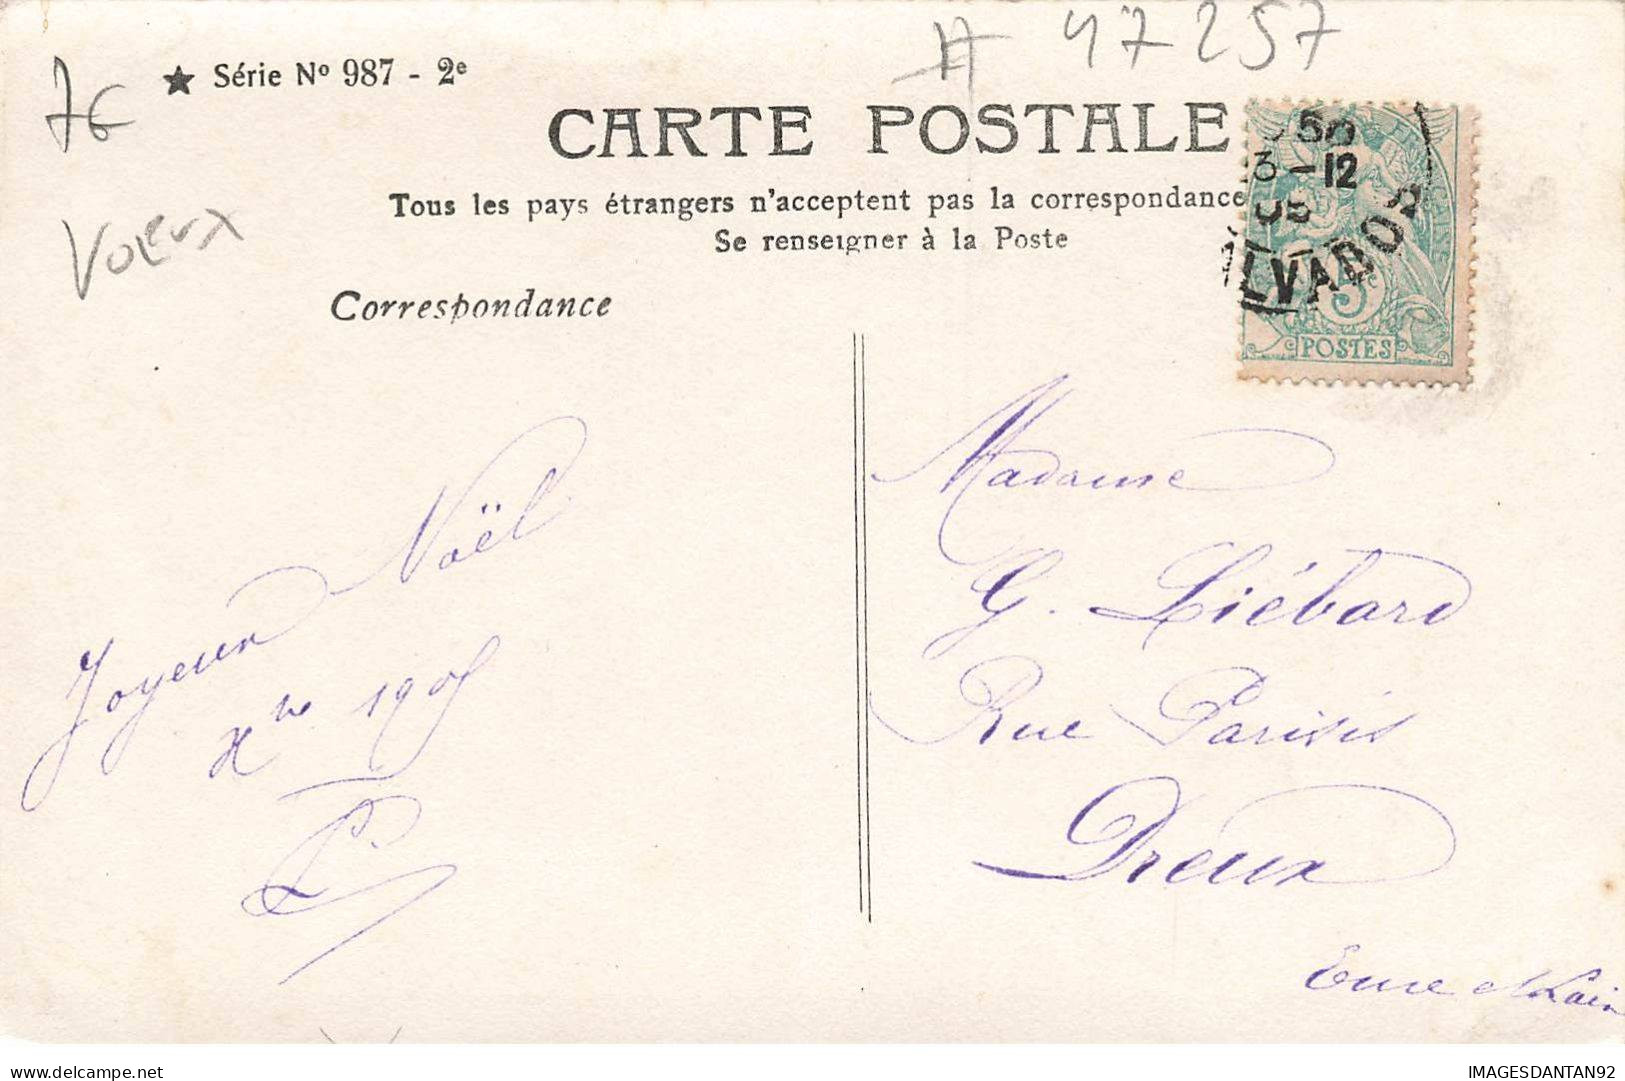 # 47257
7€
★ Série Nº 987 - 2e
CARTE POSTALE
Tous les pays étrangers n'acceptent pas la correspondance
Se renseigner à la Poste
Voeux
Correspondance
50
3 -12
05
LVADOS
5c
POSTES
Joyeux Noël
Xbre 1905
Madame
G. Liébard
Rue Parisis
Dreux
Eure et Loir
IMAGESDANTAN92